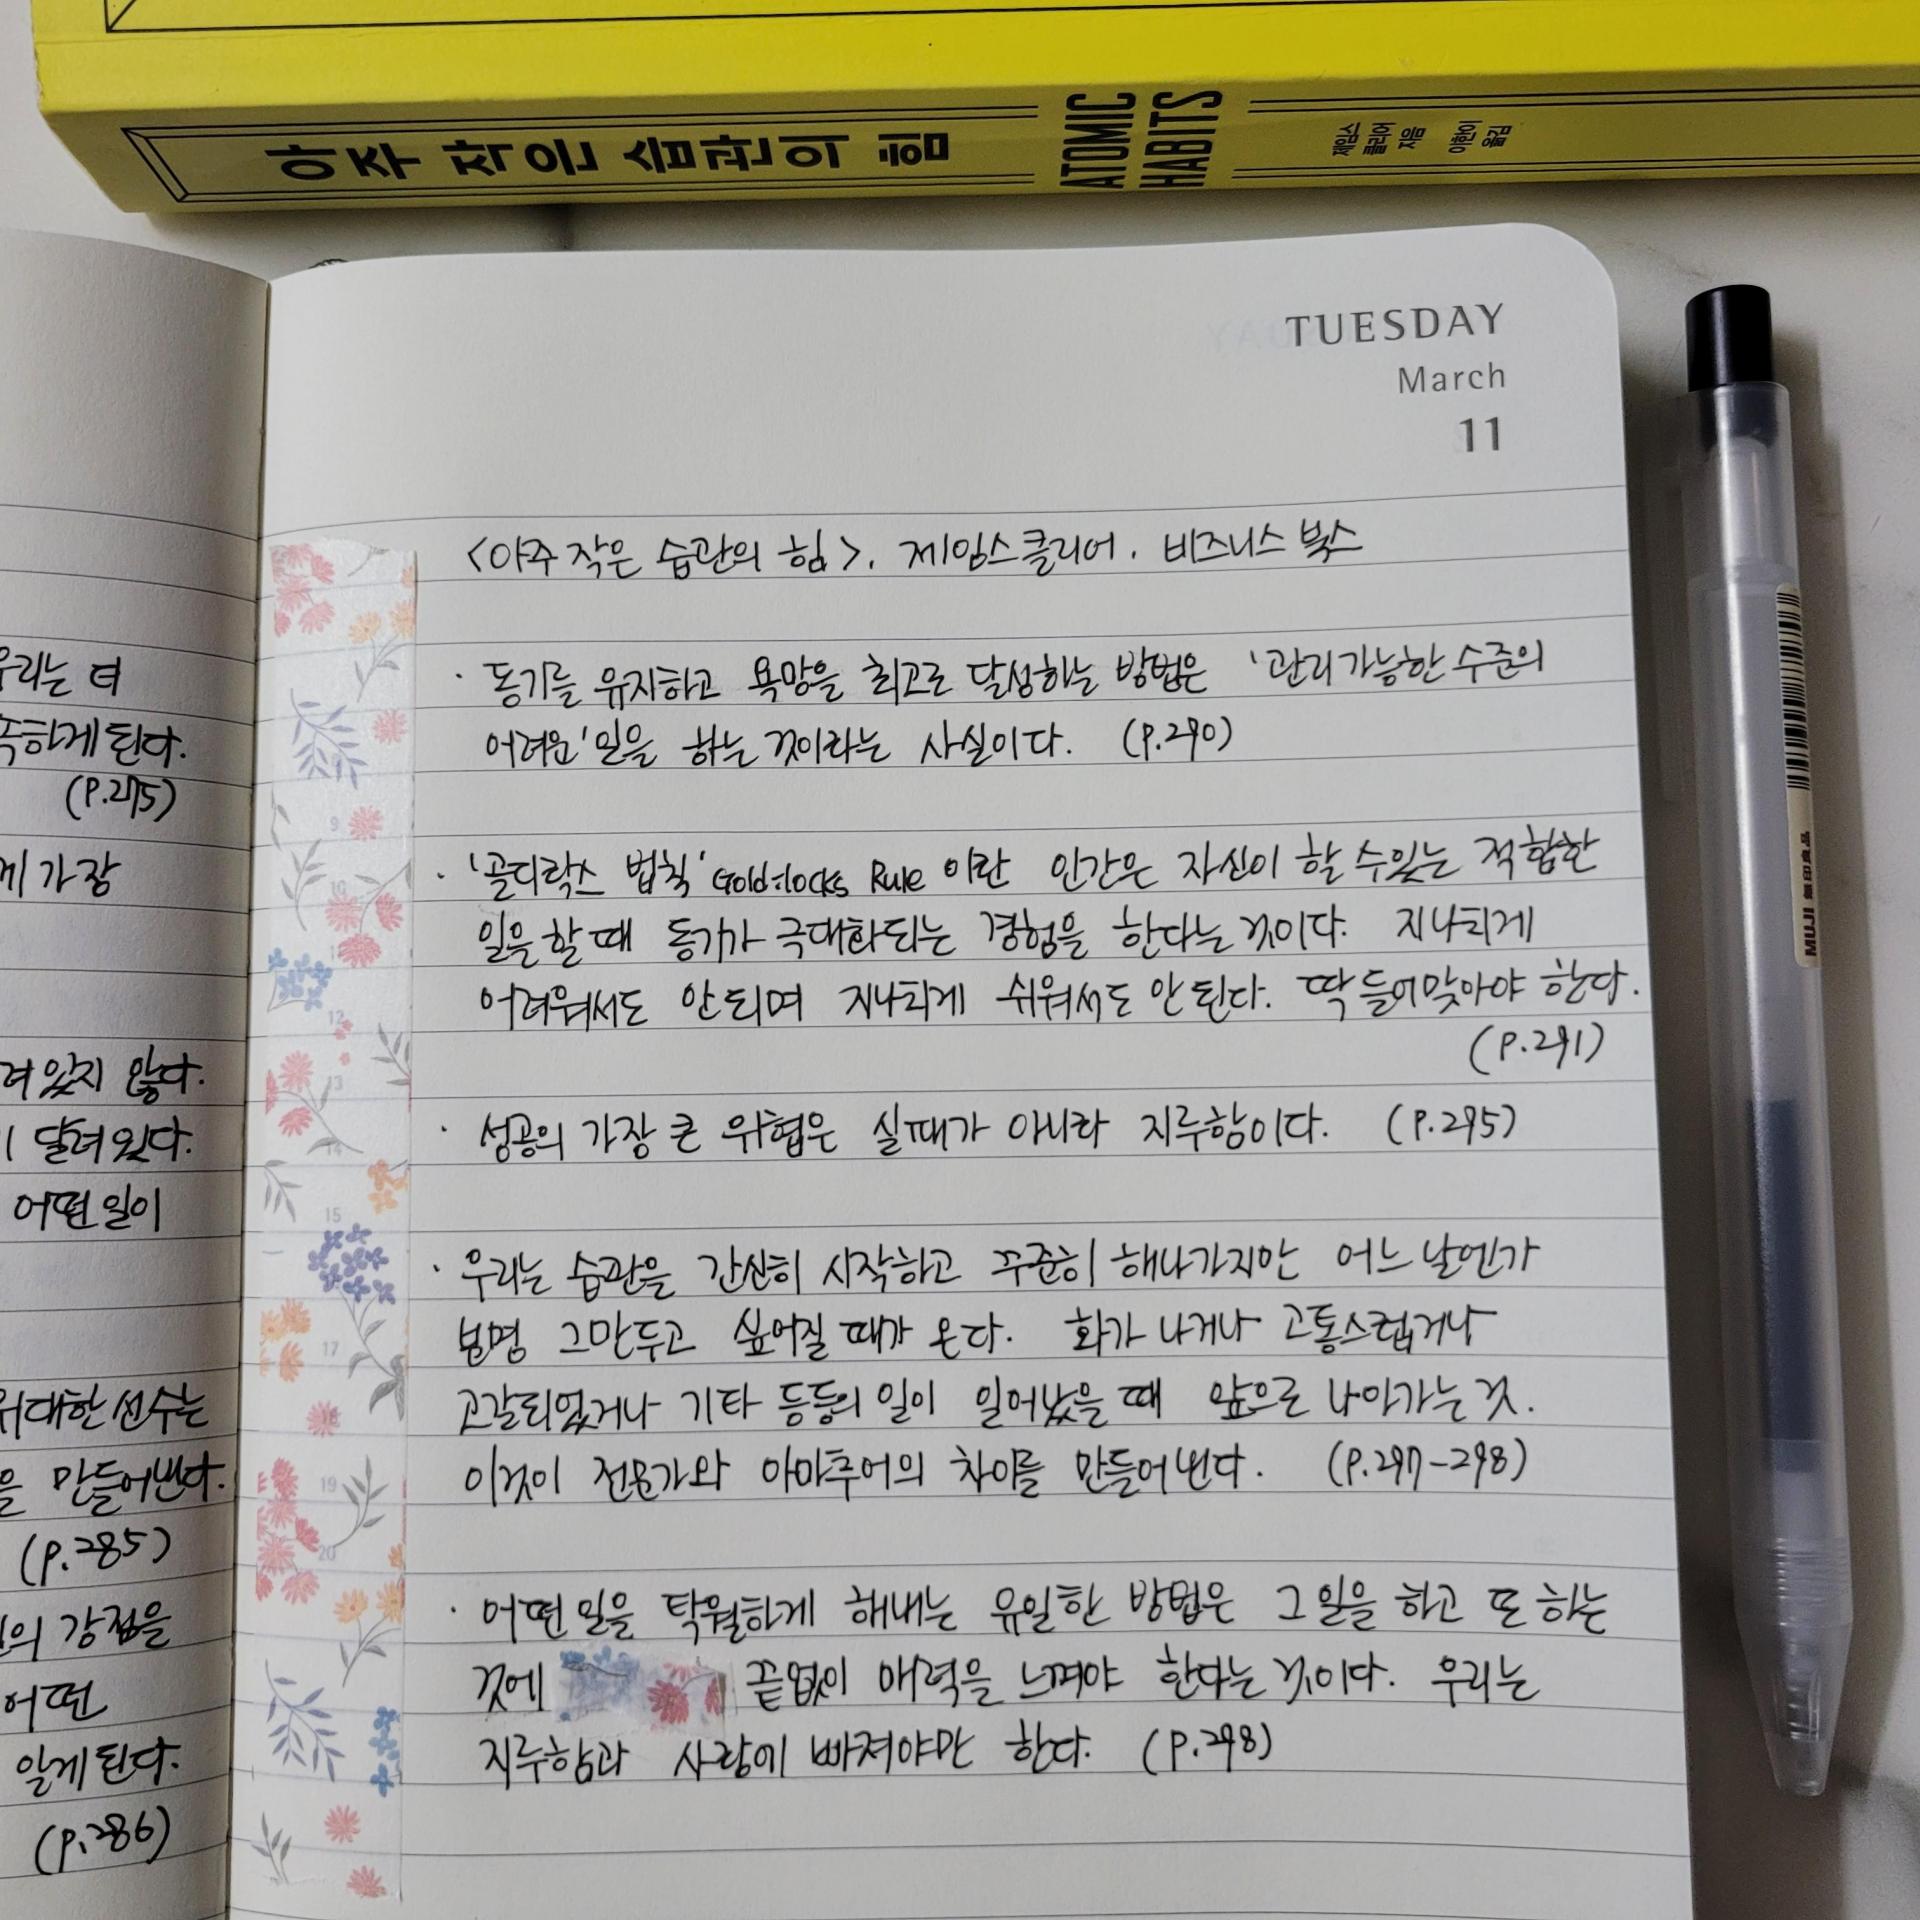 아주 작은 습관의 힘
ATOMIC
HABITS
제임스
클리어
지음
이한이
옮김
TUESDAY
March
11
<아주 작은 습관의 힘>. 제임스클리어. 비즈니스 북스
· 동기를 유지하고 욕망을 최고로 달성하는 방법은 '관리가능한 수준의
어려운' 일을 하는 것이라는 사실이다. (P.290)
· '골디락스 법칙' Goldilocks Rule 이란 인간은 자신이 할 수 있는 적합한
일을 할 때 동기가 극대화되는 경험을 한다는 것이다. 지나치게
어려워서도 안되며 지나치게 쉬워서도 안된다. 딱 들어맞아야 한다.
(P.291)
· 성공의 가장 큰 위협은 실패가 아니라 지루함이다. (P.295)
· 우리는 습관을 간신히 시작하고 꾸준히 해나가지만 어느 날엔가
분명 그만두고 싶어질 때가 온다. 화가 나거나 고통스럽거나
고갈되었거나 기타 등등의 일이 일어났을 때 앞으로 나아가는 것.
이것이 전문가와 아마추어의 차이를 만들어낸다. (P.297-298)
· 어떤 일을 탁월하게 해내는 유일한 방법은 그 일을 하고 또 하는
것에 끝없이 매력을 느껴야 한다는 것이다. 우리는
지루함과 사랑에 빠져야만 한다. (P.298)
우리는 더
하게 된다.
(P.275)
가장
있지 않다.
달려 있다.
어떤 일이
위대한 선수는
을 만들어낸다.
(P.285)
의 강점을
어떤
알게 된다.
(P.286)
9
10
11
12
13
14
15
17
18
19
20
MUJI 無印良品